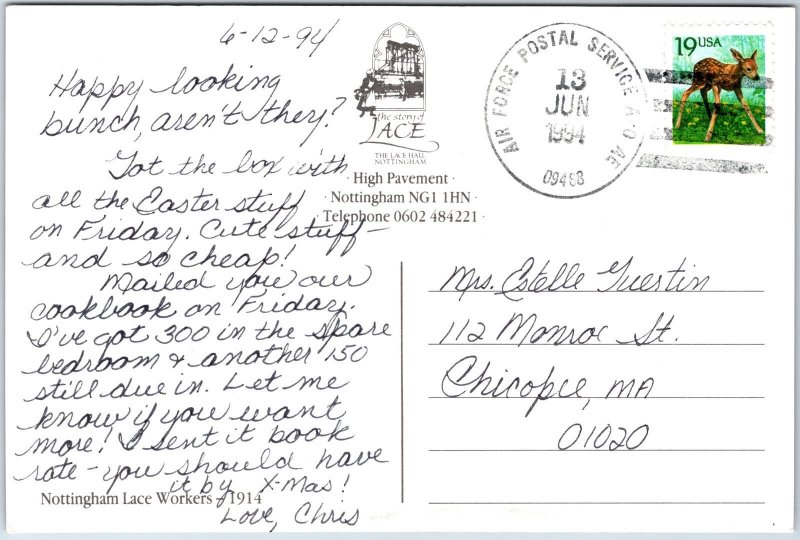 6-12-94
Happy looking
bunch, aren't they?
Got the box with
all the Easter stuff
on Friday. Cute stuff -
and so cheap!
Mailed you our
cookbook on Friday.
I've got 300 in the spare
bedroom & another 150
still due in. Let me
know if you want
more! I sent it book
rate - you should have
it by X-Mas!
Love, Chris
Nottingham Lace Workers - 1914
the story of
LACE
THE LACE HALL
NOTTINGHAM
· High Pavement ·
· Nottingham NG1 1HN ·
· Telephone 0602 484221 ·
AIR FORCE POSTAL SERVICE APO AE
13
JUN
1994
09468
19USA
Mrs. Estelle Guertin
112 Monroe St.
Chicopee, MA
01020